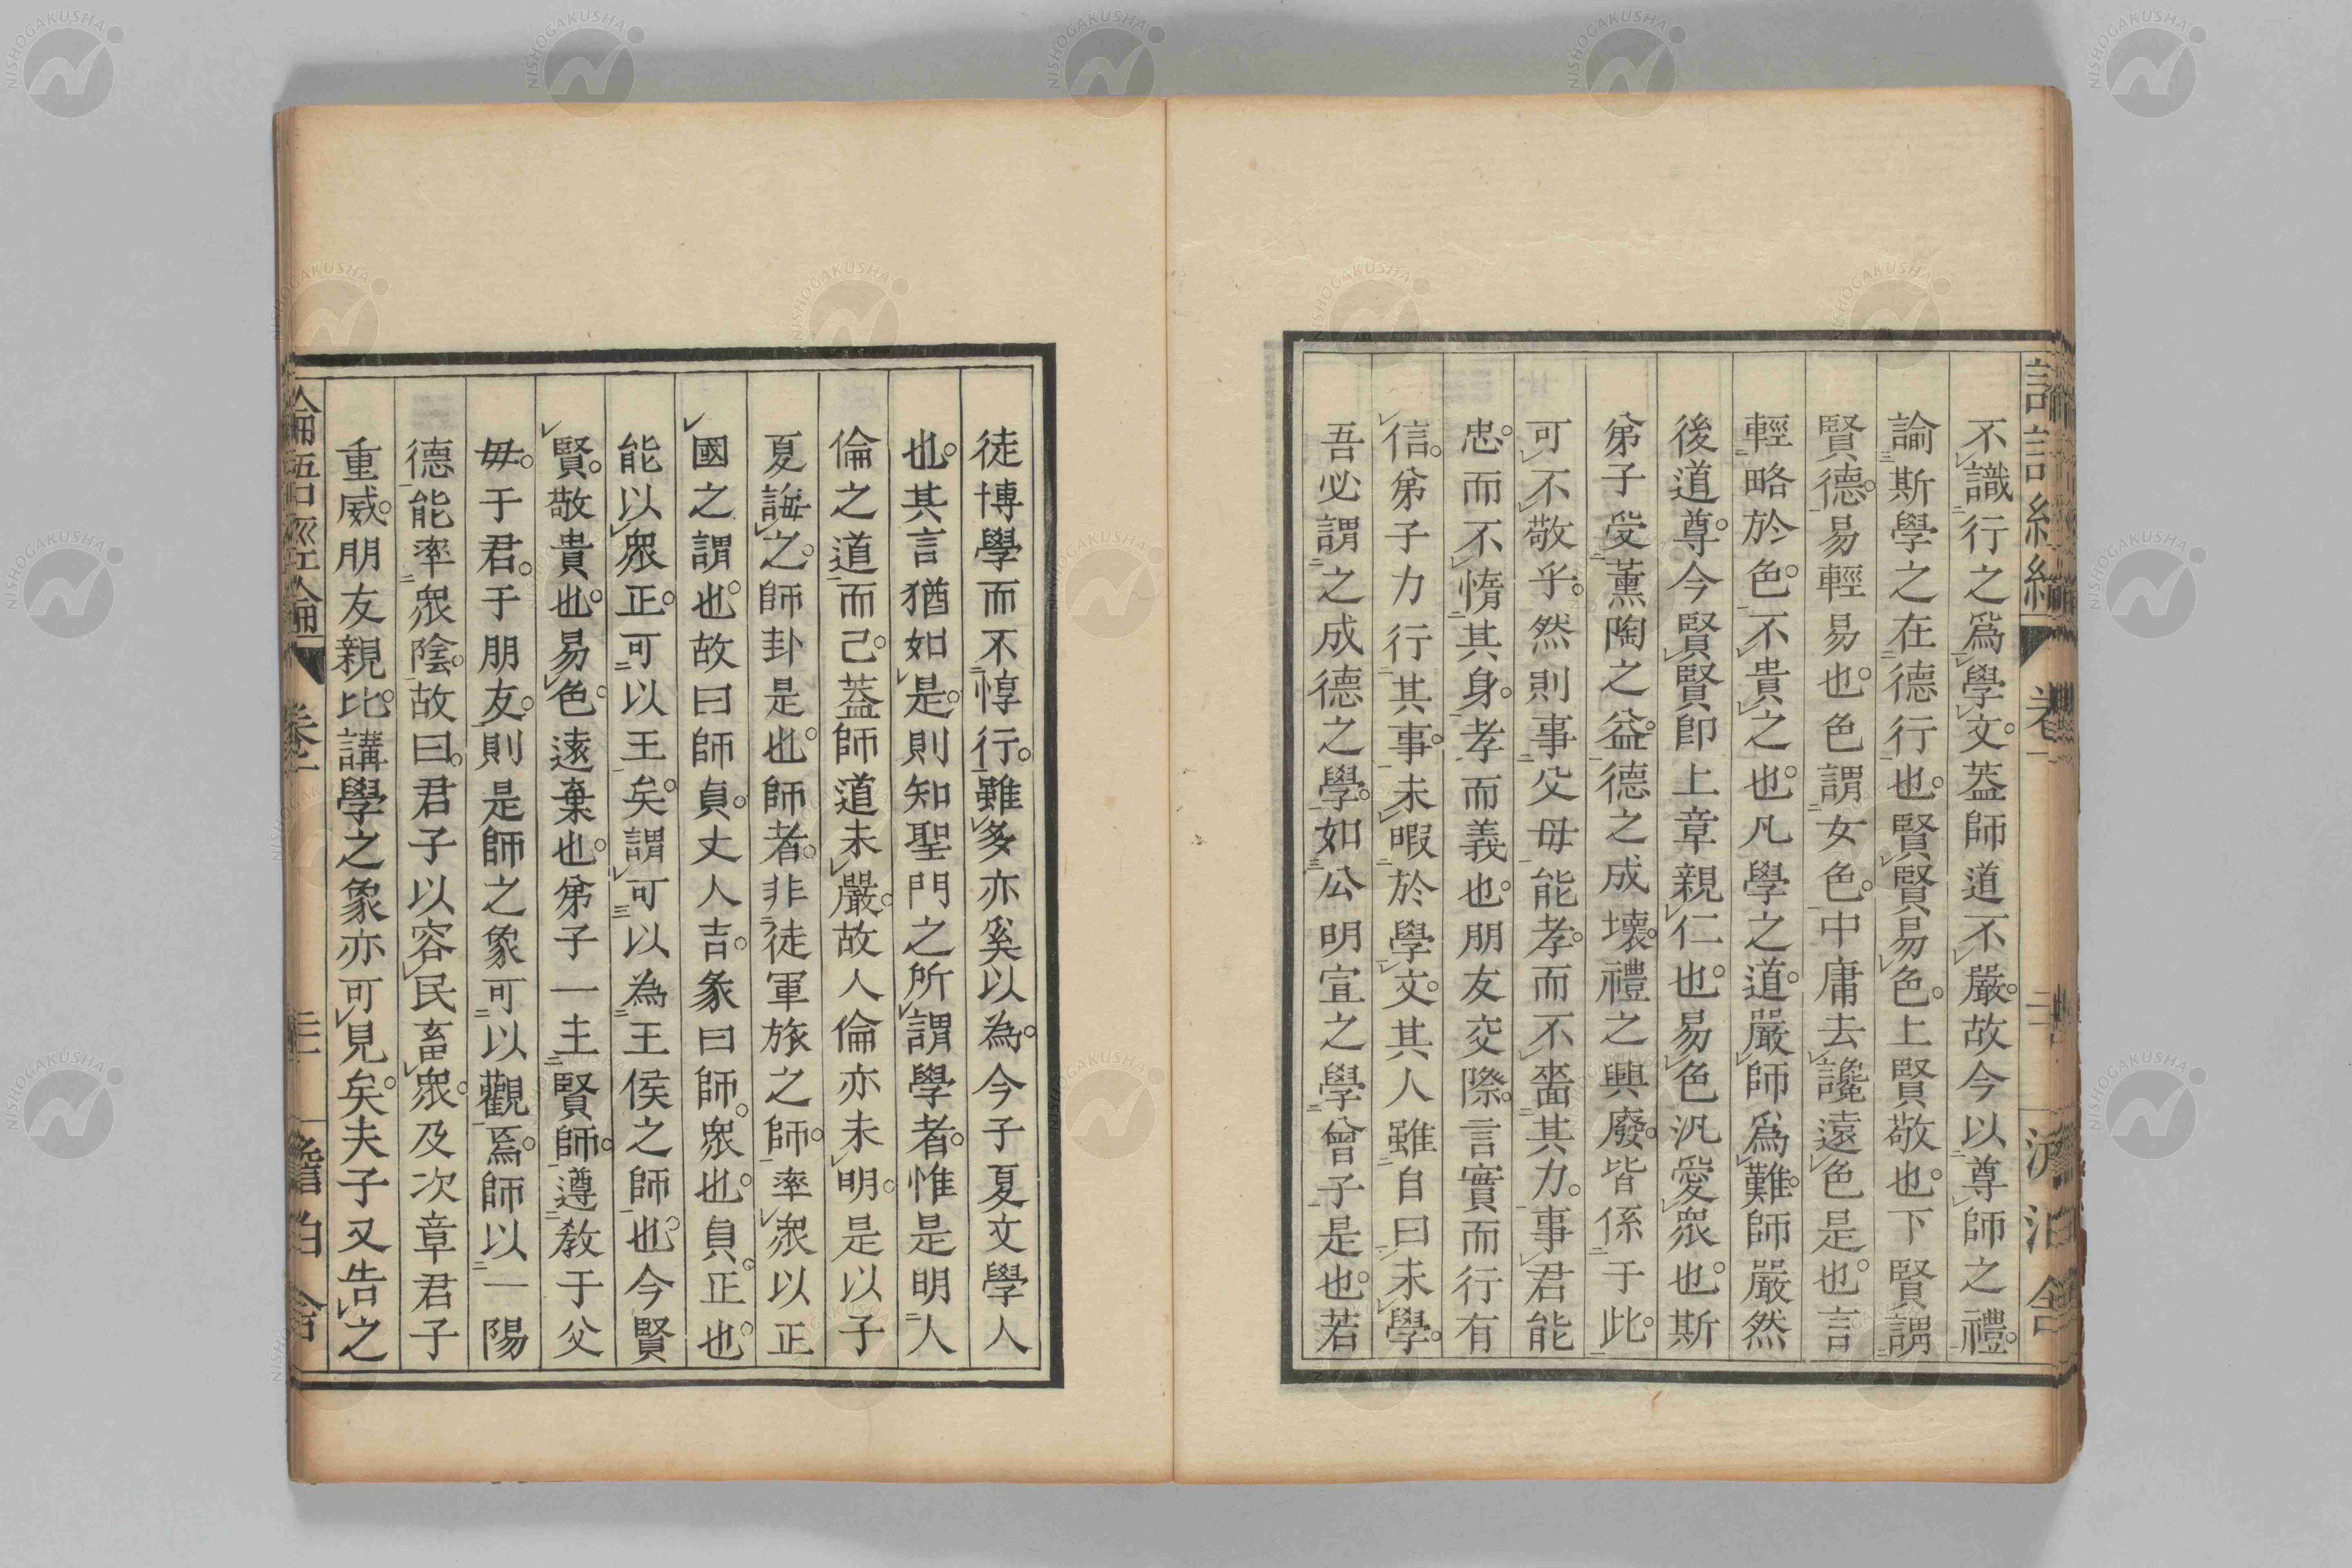 不識行之爲學文。葢師道不嚴。故今以尊師之禮。
論斯學之在德行也。賢賢易色。上賢敬也。下賢謂
賢德。易輕易也。色謂女色。中庸去讒遠色是也。言
輕略於色。不貴之也。凡學之道。嚴師爲難。師嚴然
後道尊。今賢賢卽上章親仁也。易色汎愛衆也。斯
弟子受薰陶之益。德之成壞。禮之興廢。皆係于此。
可不敬乎。然則事父母能孝。而不嗇其力。事君能
忠。而不惰其身。孝而義也。朋友交際。言實而行有
信。弟子力行其事。未暇於學文。其人雖自曰未學。
吾必謂之成德之學。如公明宣之學曾子是也。若
徒博學而不惇行。雖多亦奚以為。今子夏文學人
也。其言猶如是。則知聖門之所謂學者。惟是明人
倫之道而已。葢師道未嚴。故人倫亦未明。是以子
夏誨之。師卦是也。師者。非徒軍旅之師。率衆以正
國之謂也。故曰師貞。丈人吉。彖曰師。衆也。貞。正也。
能以衆正。可以王矣。謂可以為王侯之師也。今賢
賢。敬貴也。易色。遠棄也。弟子一主賢師。遵教于父
毋。于君。于朋友。則是師之象可以觀焉。師以一陽
德能率衆陰。故曰。君子以容民畜衆。及次章君子
重威。朋友親比。講學之象亦可見矣。夫子又告之
論語經綸 卷一 三 澹泊舍
NISHOGAKUSHA